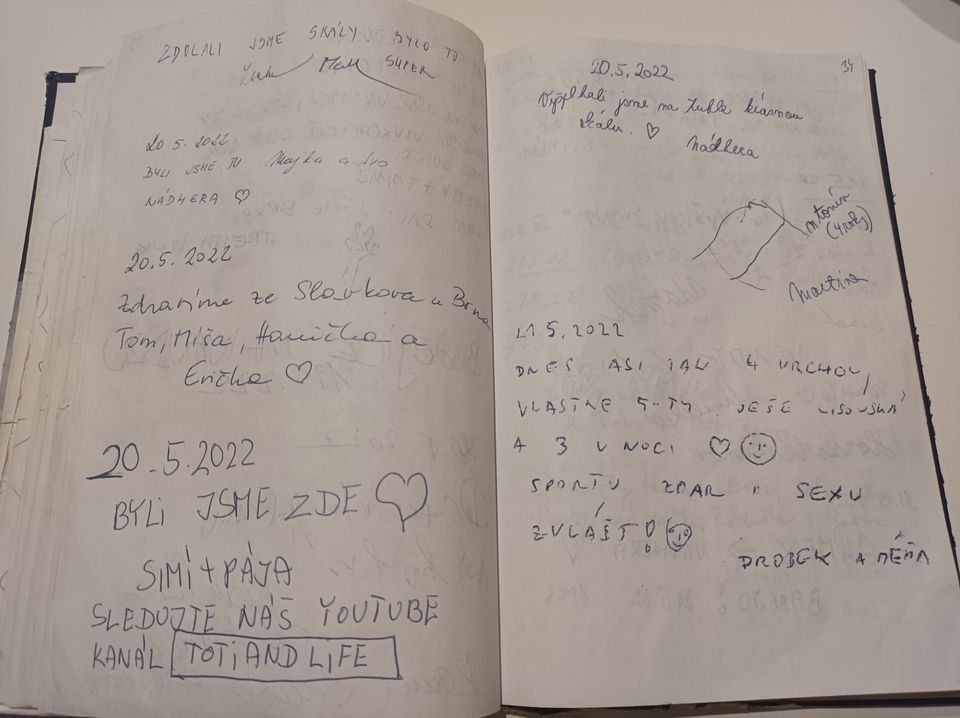 ZDOLALI JSME SKÁLY BYLO TO
SUPER
20.5.2022
BYLI JSME TU Majka a Ivo
NÁDHERA ♡
20.5.2022
Zdravíme ze Slavkova u Brna
Tom, Míša, Hanička a
Erička ♡
20.5.2022
BYLI JSME ZDE ♡
SIMI + PÁJA
SLEDUJTE NÁŠ YOUTUBE
KANÁL TOTI AND LIFE
34
20.5.2022
jsme na krásnou
skálu. ♡ Nádhera
Antonín
(4 roky)
Martina
21.5.2022
DNES ASI TAK 4 VRCHOL,
VLASTNE 5-TÝ JEŠE
A 3 V NOCI ♡ ☺
SPORTU ZDAR A SEXU
ZVLÁŠT! ☺
DROBEK A MÉĎA